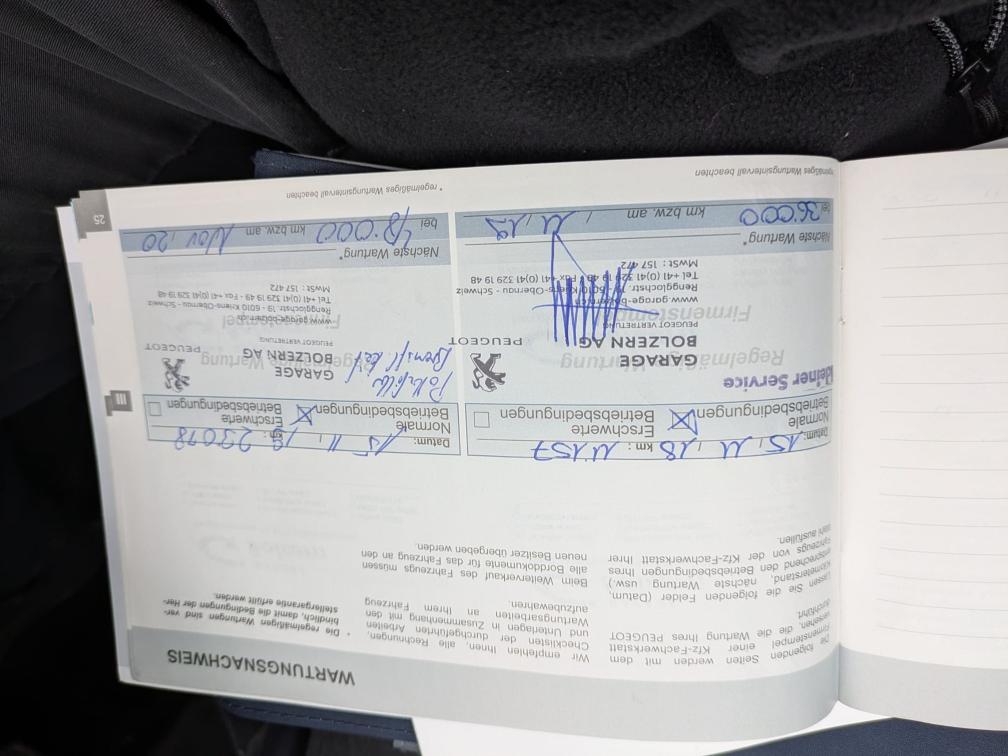 WARTUNGSNACHWEIS
Die folgenden Seiten werden mit dem
Firmenstempel einer Kfz-Fachwerkstatt
versehen, die die Wartung Ihres PEUGEOT
durchführt.
Lassen Sie die folgenden Felder (Datum,
Kilometerstand, nächste Wartung usw.)
entsprechend den Betriebsbedingungen Ihres
Fahrzeugs von der Kfz-Fachwerkstatt Ihrer
Wahl ausfüllen.
Wir empfehlen Ihnen, alle Rechnungen,
Checklisten der durchgeführten Arbeiten
und Unterlagen in Zusammenhang mit den
Wartungsarbeiten an Ihrem Fahrzeug
aufzubewahren.
Beim Weiterverkauf des Fahrzeugs müssen
alle Borddokumente für das Fahrzeug an den
neuen Besitzer übergeben werden.
* Die regelmäßigen Wartungen sind ver-
bindlich, damit die Bedingungen der Her-
stellergarantie erfüllt werden.
Datum: 15, 11, 18 km : 11157
Normale Betriebsbedingungen
Erschwerte Betriebsbedingungen
kleiner Service
Regelmäßige Wartung
GARAGE
BOLZERN AG
PEUGEOT VERTRETUNG
PEUGEOT
Firmenstempel
www.garage-bolzern.ch
Rengglochstr. 19 - 6010 Kriens-Obernau - Schweiz
Tel +41 (0)41 329 19 49 - Fax +41 (0)41 329 19 48
MwSt : 157 472
Nächste Wartung*
bei 36'000 km bzw. am 11, 19
regelmäßiges Wartungsintervall beachten
Datum: 15, 11, 19 km: 23078
Normale Betriebsbedingungen
Erschwerte Betriebsbedingungen
Regelmäßige Wartung
GARAGE
BOLZERN AG
PEUGEOT VERTRETUNG
PEUGEOT
Firmenstempel
www.garage-bolzern.ch
Rengglochstr. 19 - 6010 Kriens-Obernau - Schweiz
Tel +41 (0)41 329 19 49 - Fax +41 (0)41 329 19 48
MwSt : 157 472
Nächste Wartung*
bei 48'000 km bzw. am Nov, 20
* regelmäßiges Wartungsintervall beachten
III
25